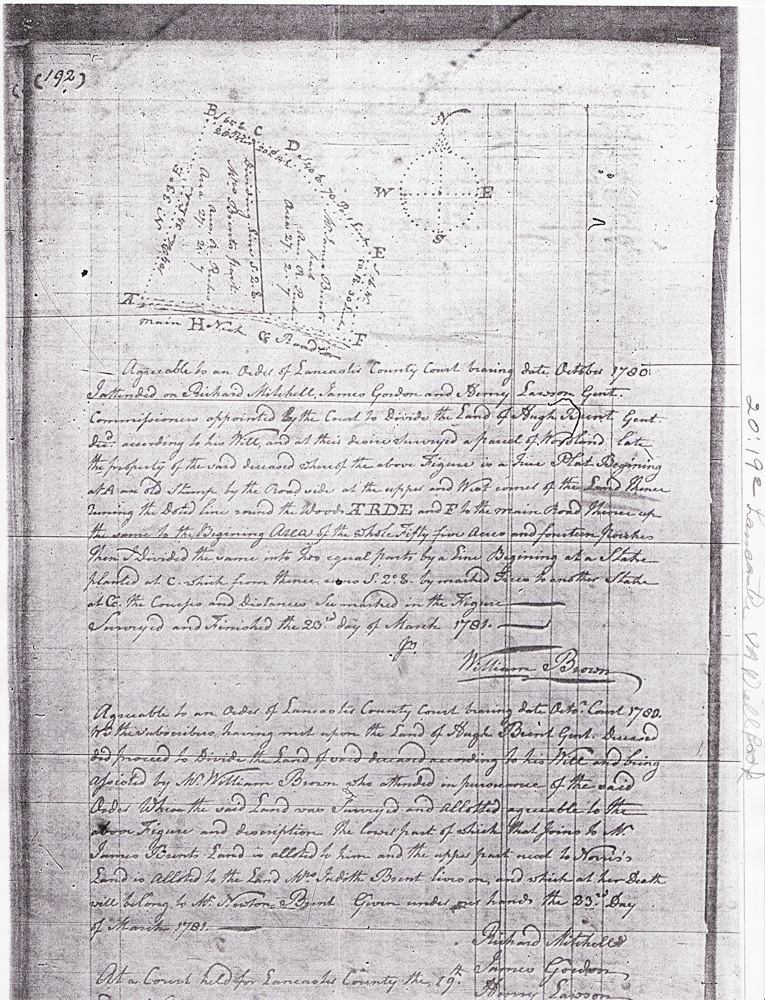 (192)
B
C
D
N
W
E
S
E
Dividing Line S. 2° 8.
Mrs Brents part
Area 27. 2. 7
Area 27. 2. 7
A
main H
G Road
F
Agreable to an Order of Lancaster County Court bearing date October 1780.
I attended on Richard Mitchell, James Gordon and Henry Lawson Gent.
Commissioners appointed by the Court to Divide the Land of Hugh Brent Gent.
Decd. according to his Will, and at their desire surveyed a parcel of Woodland late
the property of the said deceased whereof the above Figure is a True Plat Begining
at A an old Stump by the Road side at the upper and West corner of the Land thence
runing the Doted line round the Woods ABDE and F to the main Road thence up
the same to the Begining Area of the whole Fifty five Acres and fourteen Perches
then I Divided the same into two equal parts by a Line Begining at a Stake
planted at C. which from thence runs S. 2° 8. by marked Trees to another Stake
at G. the Courses and Distances See marked in the Figure
Surveyed and Finished the 23rd day of March 1781.
William Brown
Agreable to an Order of Lancaster County Court bearing date Octor. Court 1780.
We the subscribers, having met upon the Land of Hugh Brent Gent. Deceased
did proceed to Divide the Land of said deceased according to his Will and being
assisted by Mr. William Brown who attended in pursuance of the said
Order When the said Land was Surveyed and Allotted agreeable to the
above Figure and description The lower part of which that Joins to Mr.
James Brents Land is alloted to him and the upper part next to Norris's
Land is Alloted to the Land Mrs Judith Brent lives on, and which at her Death
will belong to Mr. Newton Brent Given under our hands the 23rd Day
of March 1781.
Richard Mitchell
James Gordon
Henry Lawson
At a Court held for Lancaster County the 19th
20:192 Lancaster VA Will Book